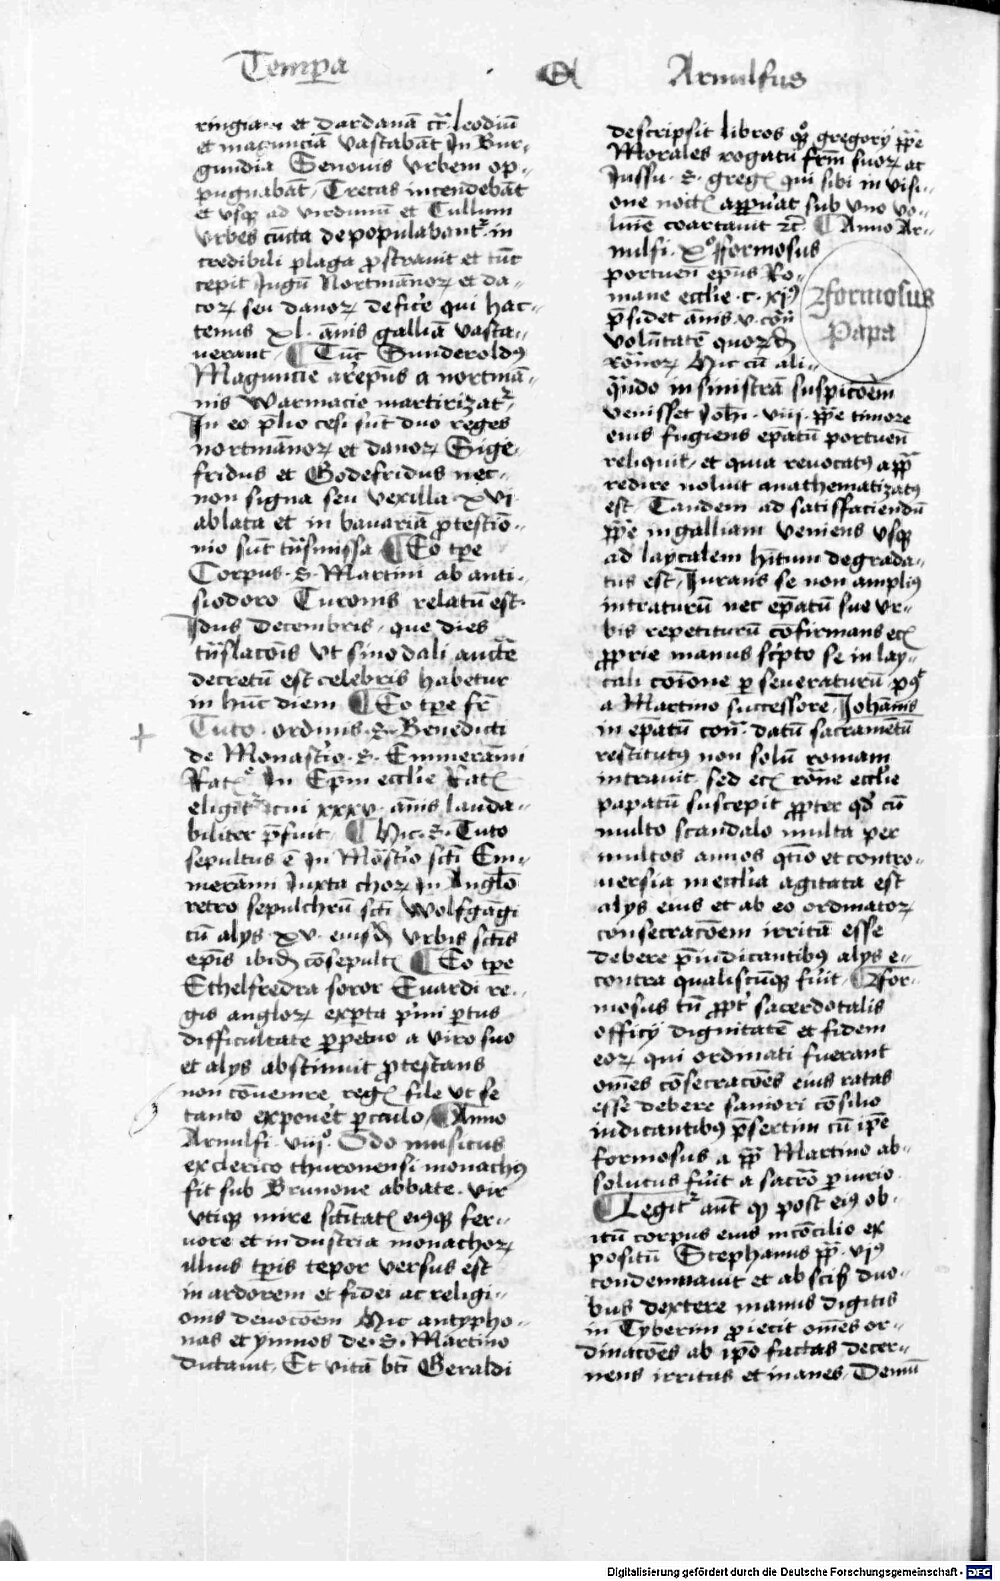 Tempa
&
Arnulfus
ringiam et dardanā cr̄ leodiū
et magunciā vastabāt In Bur-
gundia Senonis vrbem op-
pugnabāt, Trecas incendebāt
et vsqꝫ ad virdunū et Tullum
vrbes cūcta depopulabantr̄ in
credibili plaga pstravit et tūc
cepit Iugū Nortmānoꝝ et da-
coꝝ seu danoꝝ deficere qui hac-
tenus xl. annis galliā vasta-
uerant. ¶ Tūc Sunderoldꝰ
Maguncie arēpūs a nortmā-
nis Warmacie martirizatr̄
In eo p̄lio cesi sūt duo reges
nortmānoꝝ et danoꝝ Sige-
fridus et Godefridus nec-
non signa seu vexilla xvi
ablata et in bavariā ptestīo-
nio sūt trāsmissa. ¶ Eo tpe
Corpus .S. Martini ab anti-
siodoro Turonis relatū est.
Idus Decembris, que dies
trāslacōis vt sinodali auctē
decretū est celebris habetur
in hūc diem ¶ Eo tpe fr̄
Tuto ordinis .S. Benedicti
de Monastīo .S. Emmerāmi
Ratꝫ In Ep̄m ecclie Ratꝫ
eligitr̄ cui xxxv. annis lauda-
biliter p̄fuit, ¶ Hic .S. Tuto
sepultus ē In Mōstīo scti Em-
merāmi Iuxta choꝝ In Anglō
retro sepulchrū scti Wolfgāgi
cū alys xv. eiusdꝫ vrbis sctis
ep̄is ibidꝫ cōsepultꝫ ¶ Eo tpe
Ethelfredra soror Evardi re-
gis angloꝝ expta p'mi ptus
difficultate ppetuo a viro suo
et alys abstinuit ptestans
non cōvenire regꝫ file vt se
tanto exponēt piculo, ¶ Anno
Arnulfi viij° Odo musicus
ex clerico thuronensi monachꝰ
fit sub Brunone abbate. vir
vtiqꝫ mire sctitatꝫ eiꝰqꝫ fer-
uore et industria monachoꝝ
illius tpis tepor versus est
in ardorem et fidei ac religi-
onis deuocōem Hic antypho-
nas et ymnos de .S. Martino
dictavit, Et vitā bti Geraldi
descripsit libros qꝫ° gregorij ppe
Morales rogatū frm̄ suoꝝ ac
Iussu .S. gregꝫ qui sibi in visi-
one noctꝫ appuāt sub vno vo-
lumīe coartavit ꝛc̄. ¶ Anno Ar-
nulfi. x° Formosus
portuen̄ epūs Ro-
mane ecclie .c. xjꝰ
p̄sidet annis v. con̄
voluntatē quoꝝdꝫ
Romoꝝ. Hic cū ali-
quando in sinistrā suspicōem
venisset Joh. viij. ppe timore
eius fugiens epatū portuen̄
reliquit, et quia revocatꝰ a ppa
redire noluit anathematizatꝰ
est. Tandem ad satisfaciendū
ppe in galliam veniens vsqꝫ
ad laycalem hītum degrada-
tus est. Jurans se non ampliꝰ
intraturū nec epatū sue vr-
bis repetiturū cōfirmans ecꝫ
pprie manus scpto se in lay-
cali cōione pseveraturū pꝰ
a Martino successore Johānis
in epatum con̄ datū sacramētū
restitutꝰ non solū romam
intravit, sed ecꝫ rōne ecclie
papatū suscepit ppter qd' cū
multo scandalo multa per
multos annos qtio et contro-
versia in ecclia agitata est
alys eius et ab eo ordinatoꝝ
consecracōem irritā esse
debere p̄iudicantibꝰ alys e-
contra qualiscūqꝫ fuit, ¶ For-
mosus tn̄ ppt' sacerdotalis
officij dignitatē et fidem
eoꝝ qui ordinati fuerant
omēs cōsecracōes eius ratas
esse debere saniori cōsilio
iudicantibꝰ p̄sertim cū ipē
formosus a pp Martino ab-
solutus fuit a sacrō piurio.
¶ Legitr̄ aut̄ qꝫ post eiꝰ ob-
itū corpus eius in cōcilio ex
positū Stephanus pp. vjꝰ
condemnavit et abscisꝫ duo-
bus dextere manus digitis
in Tyberim piecit omēs or-
dinacōes ab ipō factas decer-
nens irritas et inanes, Demū
Formosus
Papa
Digitalisierung gefördert durch die Deutsche Forschungsgemeinschaft - DFG